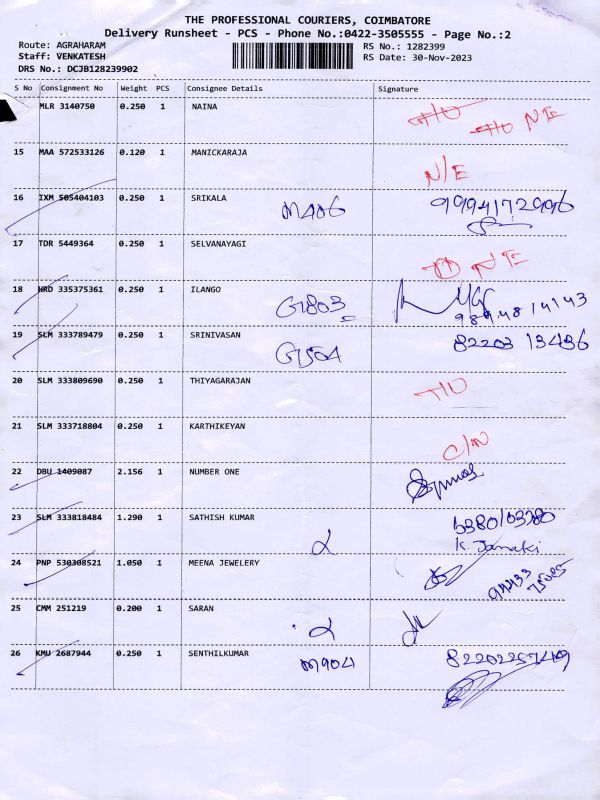 THE PROFESSIONAL COURIERS, COIMBATORE
Delivery Runsheet - PCS - Phone No.:0422-3505555 - Page No.:2
Route: AGRAHARAM RS No.: 1282399
Staff: VENKATESH RS Date: 30-Nov-2023
DRS No.: DCJB128239902
S No Consignment No Weight PCS Consignee Details Signature
MLR 3140750 0.250 1 NAINA T/U N E
15 MAA 572533126 0.120 1 MANICKARAJA N/E
16 IXM 505404103 0.250 1 SRIKALA M406 9994172996
17 TDR 5449364 0.250 1 SELVANAYAGI N E
18 HRD 335375361 0.250 1 ILANGO G1803
19 SLM 333789479 0.250 1 SRINIVASAN G1504 82203 13436
20 SLM 333809690 0.250 1 THIYAGARAJAN T/U
21 SLM 333718804 0.250 1 KARTHIKEYAN C/N
22 DBU 1409087 2.156 1 NUMBER ONE
23 SLM 333818484 1.290 1 SATHISH KUMAR
K. Janaki
24 PNP 530308521 1.050 1 MEENA JEWELERY
25 CMM 251219 0.200 1 SARAN
26 KMU 2687944 0.250 1 SENTHILKUMAR M904